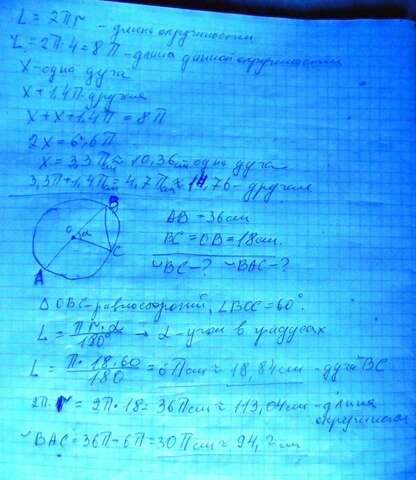 L = 2πr - длина окружности
L = 2π·4 = 8π - длина данной окружности
x - одна дуга
x + 1,4π - другая
x + x + 1,4π = 8π
2x = 6,6π
x = 3,3π см ≈ 10,36 см одна дуга
3,3π + 1,4π = 4,7π см ≈ 14,76 - другая
B
O α
C
A
AB = 36 см
BC = OB = 18 см.
◡BC - ? ◡BAC - ?
△ OBC - равносторонний, ∠BOC = 60°.
L = πr·α / 180° → α - угол в градусах
L = π·18·60 / 180 = 6π см ≈ 18,84 см - дуга BC
2π·r = 2π·18 = 36π см ≈ 113,04 см - длина окружности
◡BAC = 36π - 6π = 30π см ≈ 94,2 см